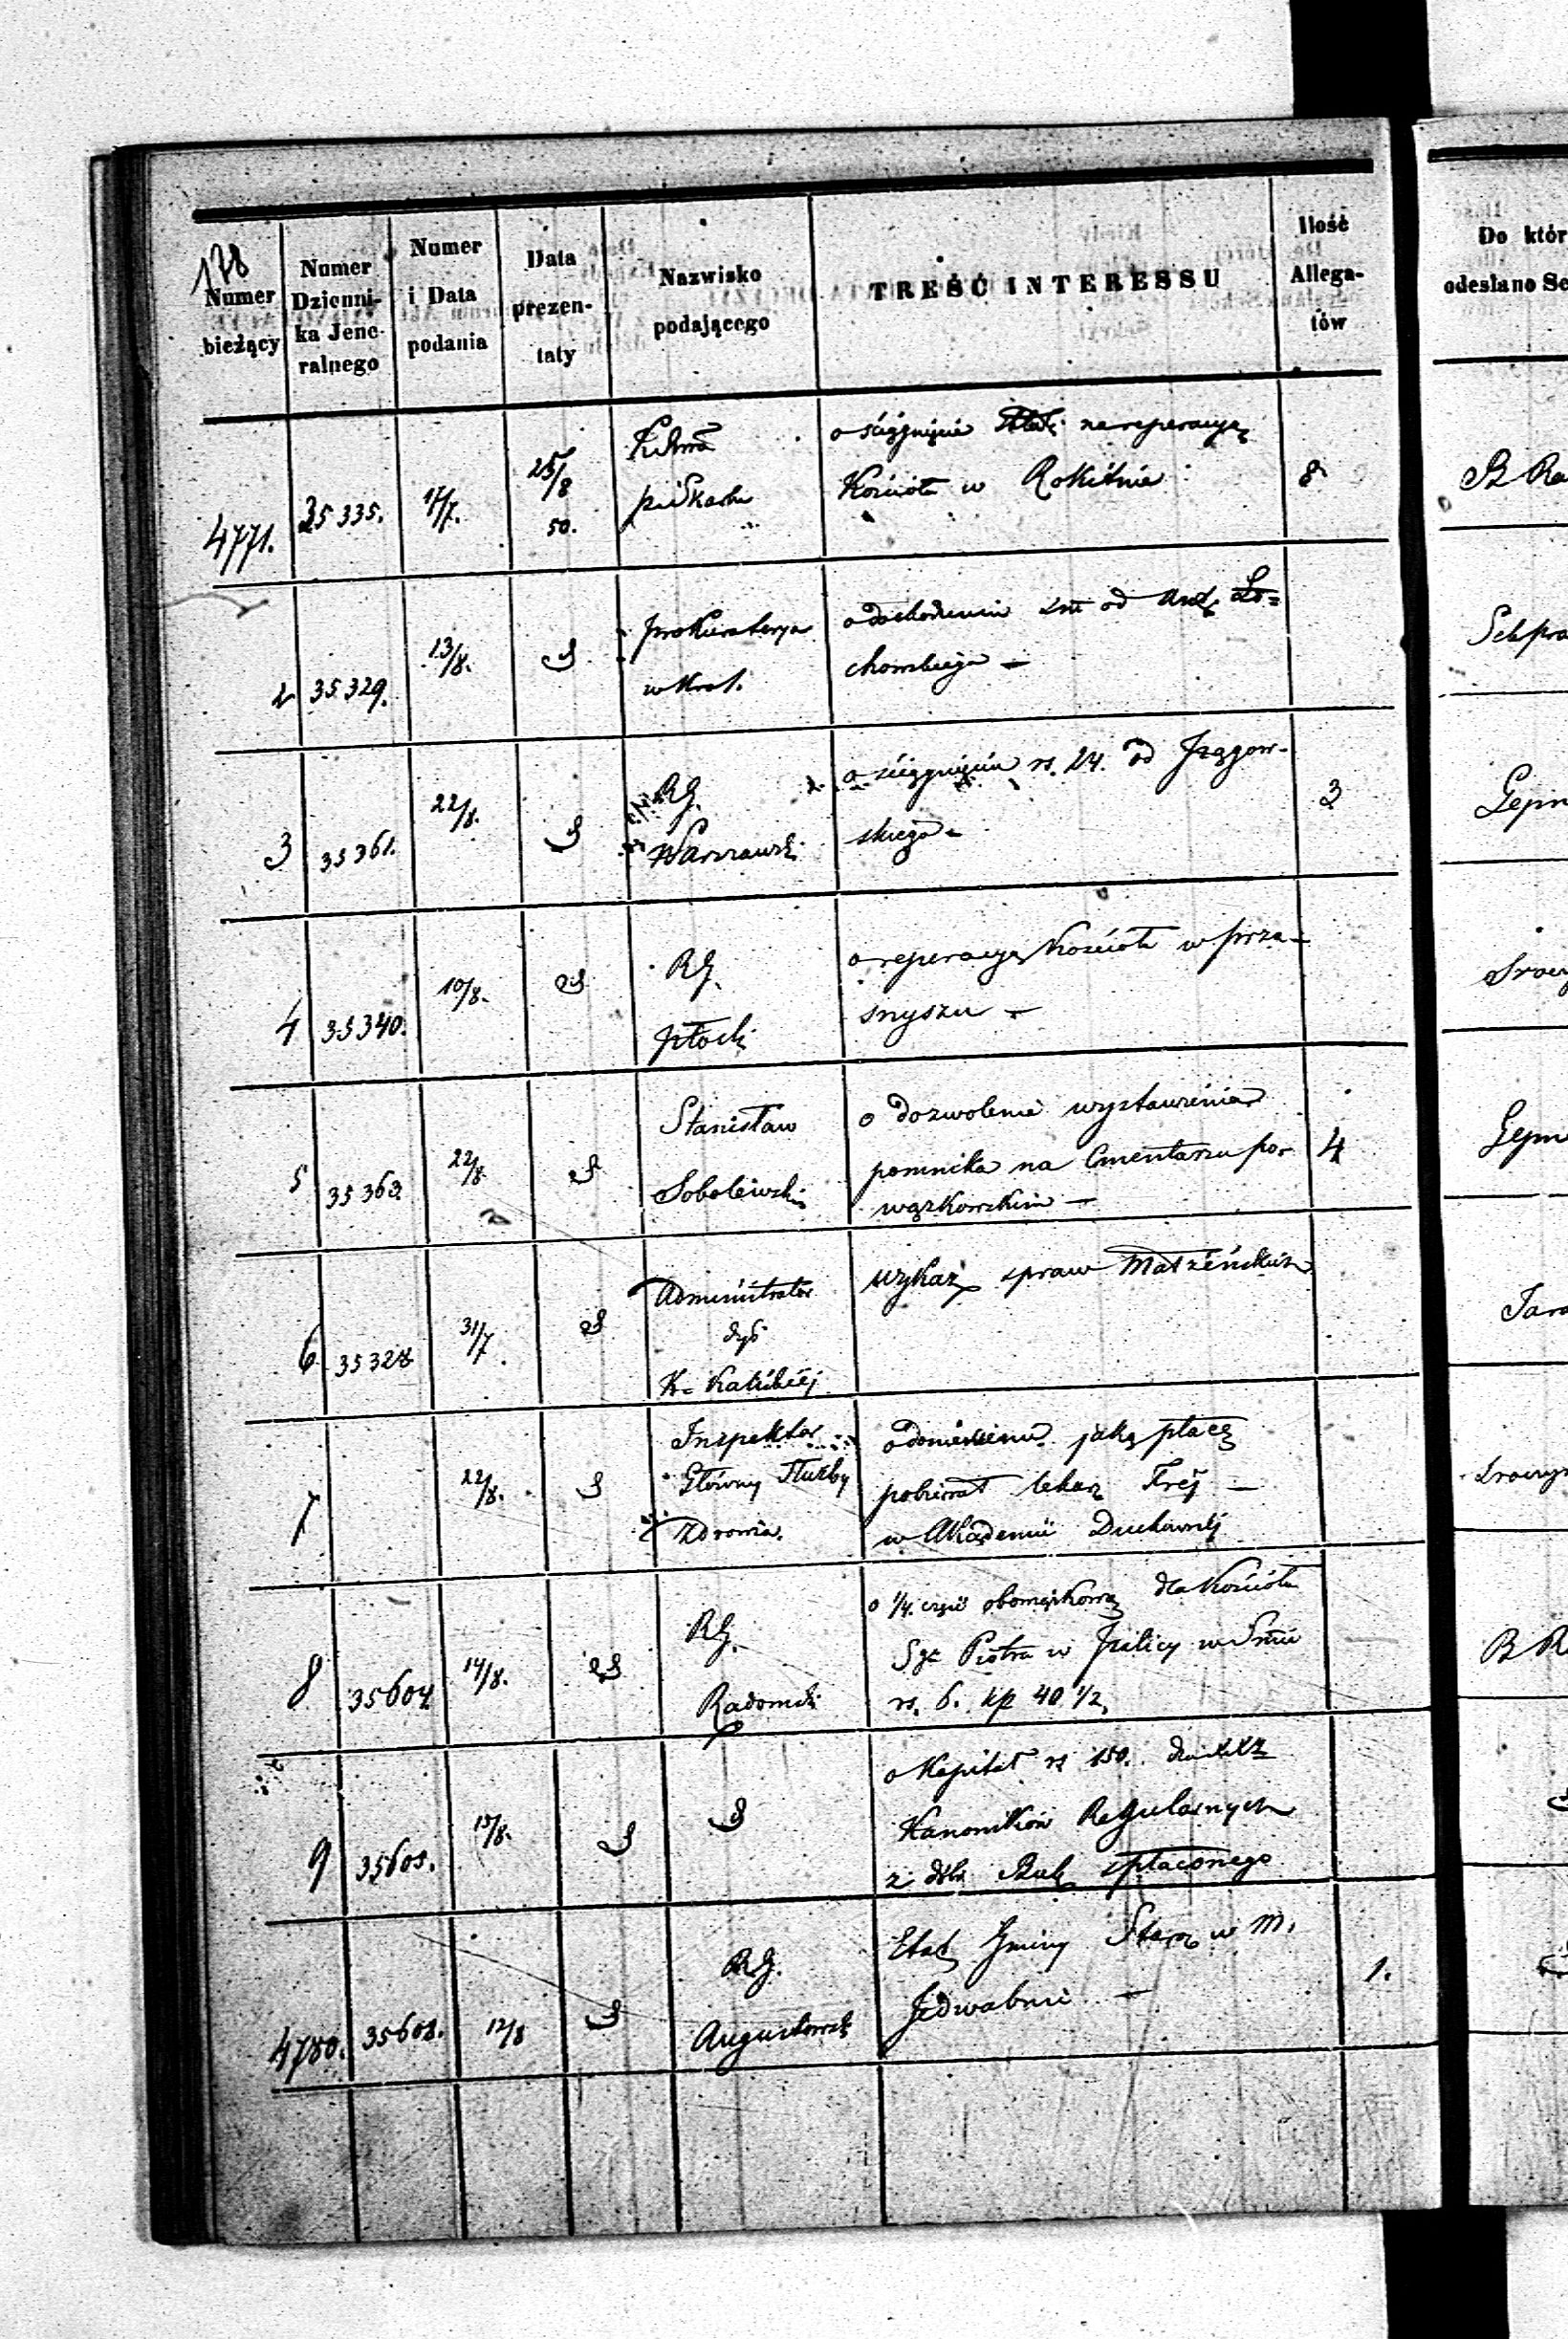 178
Numer bieżący
Numer Dzienni-
ka Jene-
ralnego
Numer
i Data
podania
Data
prezen-
taty
Nazwisko
podającego
TREŚĆ INTERESSU
Ilość
Allega-
tów
Do któr
odesłano Se
4771. 35335. 17/7. 25/8 50.
o ściągnięcie na reperacyą
Kościoła w Rokitnie 8
2 35329. 13/8. S Prokuratorya
w Król.
o dochodzeniu od
3 35361. 22/8. S RG.
Warszawski
o ściągnięciu rs. 24. od Jzągow-
skiego - 3
4 35340. 10/8. S RG.
Płocki
o reperacyą Kościoła w Prza-
snyszu -
5 35363. 22/8. S Stanisław
Sobolewski
o dozwolenie wystawienia
pomnika na Cmentarzu po-
wązkowskim - 4
6 35328 31/7. S Administrator
dyó
K. Kaliskiej
Wykaz spraw Małżeńskich
7 22/8. S Inspektor
Główny Służby
Zdrowia.
o doniesienie jaką płacę
pobierał lekarz Frej -
w Akademii Duchownej
8 35604 14/8. S RG.
Radomski
o 1/4. część dla Kościoła
Sgo Piotra w Pilicy w Smie
rs. 6. kp 40 1/2.
9 35605. 13/8. S S
o Kapitał rs 150.
Kanoników Regularnych
z dóbr spłaconego
4780. 35608. 12/8 S RG.
Augustowski
Etat Gminy Staroz w M.
Jedwabnie - 1.